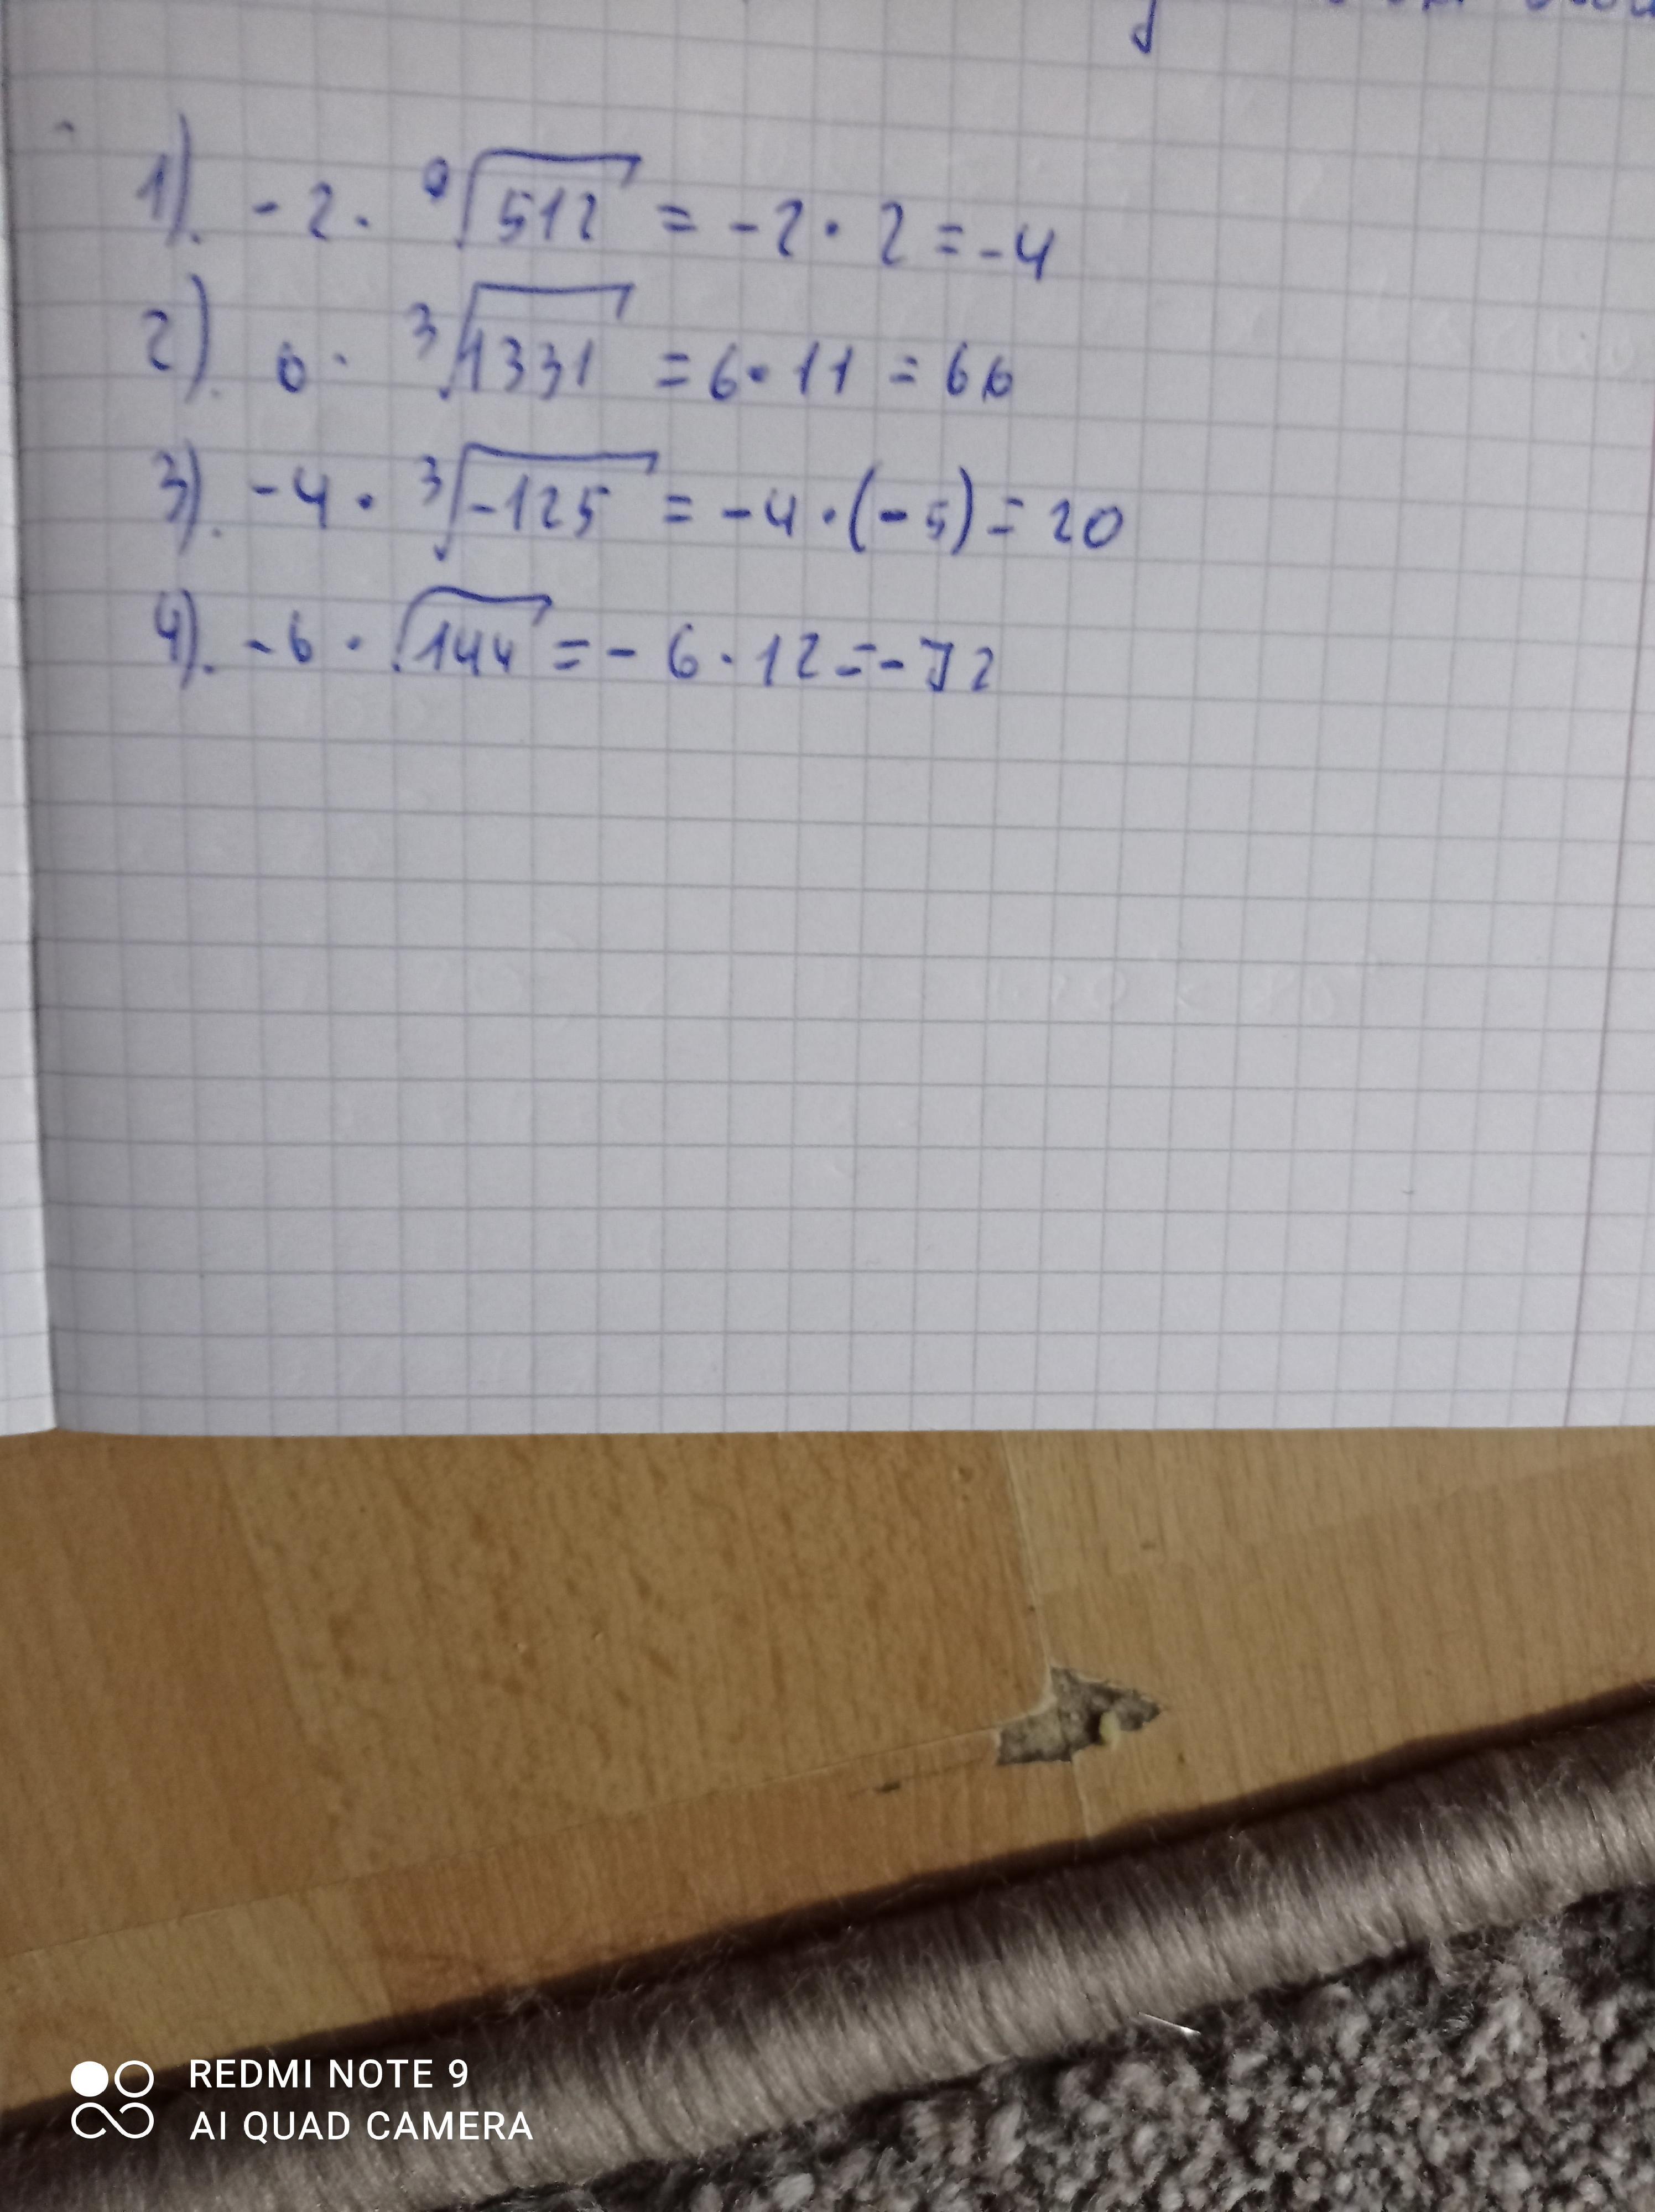 1). -2 · ⁹√512 = -2 · 2 = -4
2). 6 · ³√1331 = 6 · 11 = 66
3). -4 · ³√-125 = -4 · (-5) = 20
4). -6 · √144 = - 6 · 12 = -72
REDMI NOTE 9
AI QUAD CAMERA